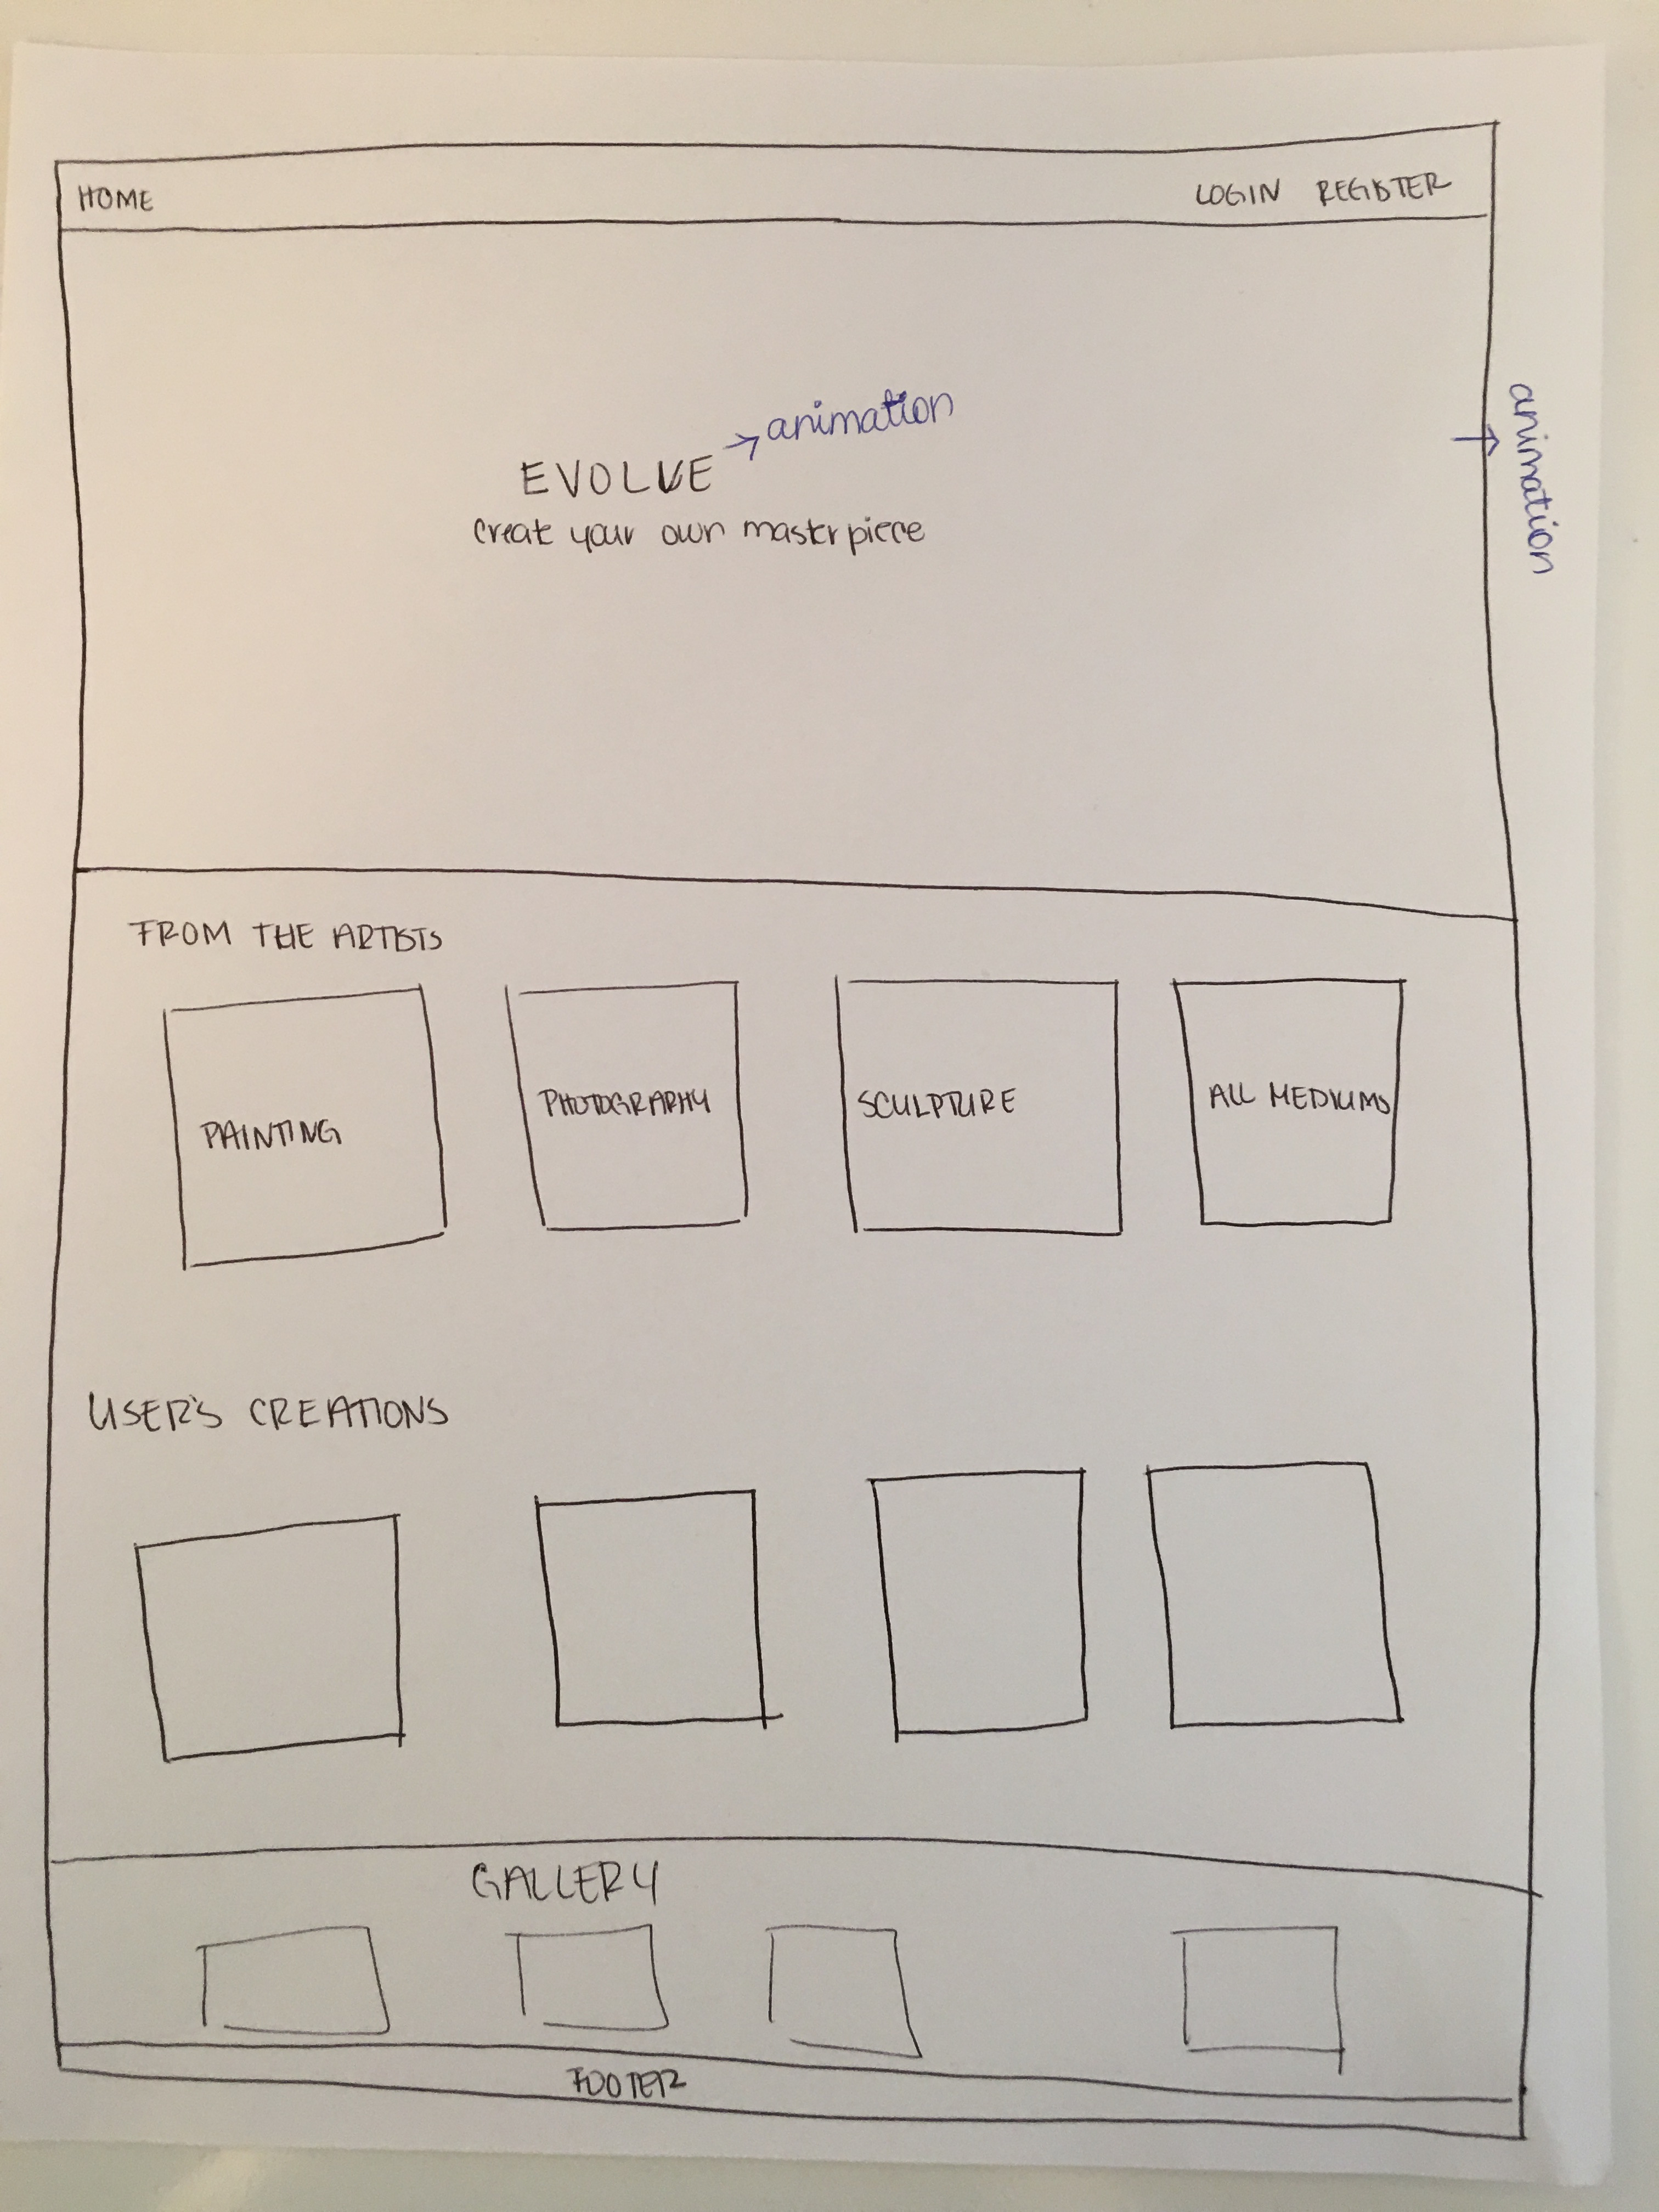 HOME
LOGIN REGISTER
animation
animation
EVOLVE
create your own masterpiece
FROM THE ARTISTS
PAINTING
PHOTOGRAPHY
SCULPTURE
ALL MEDIUMS
USER'S CREATIONS
GALLERY
FOOTER